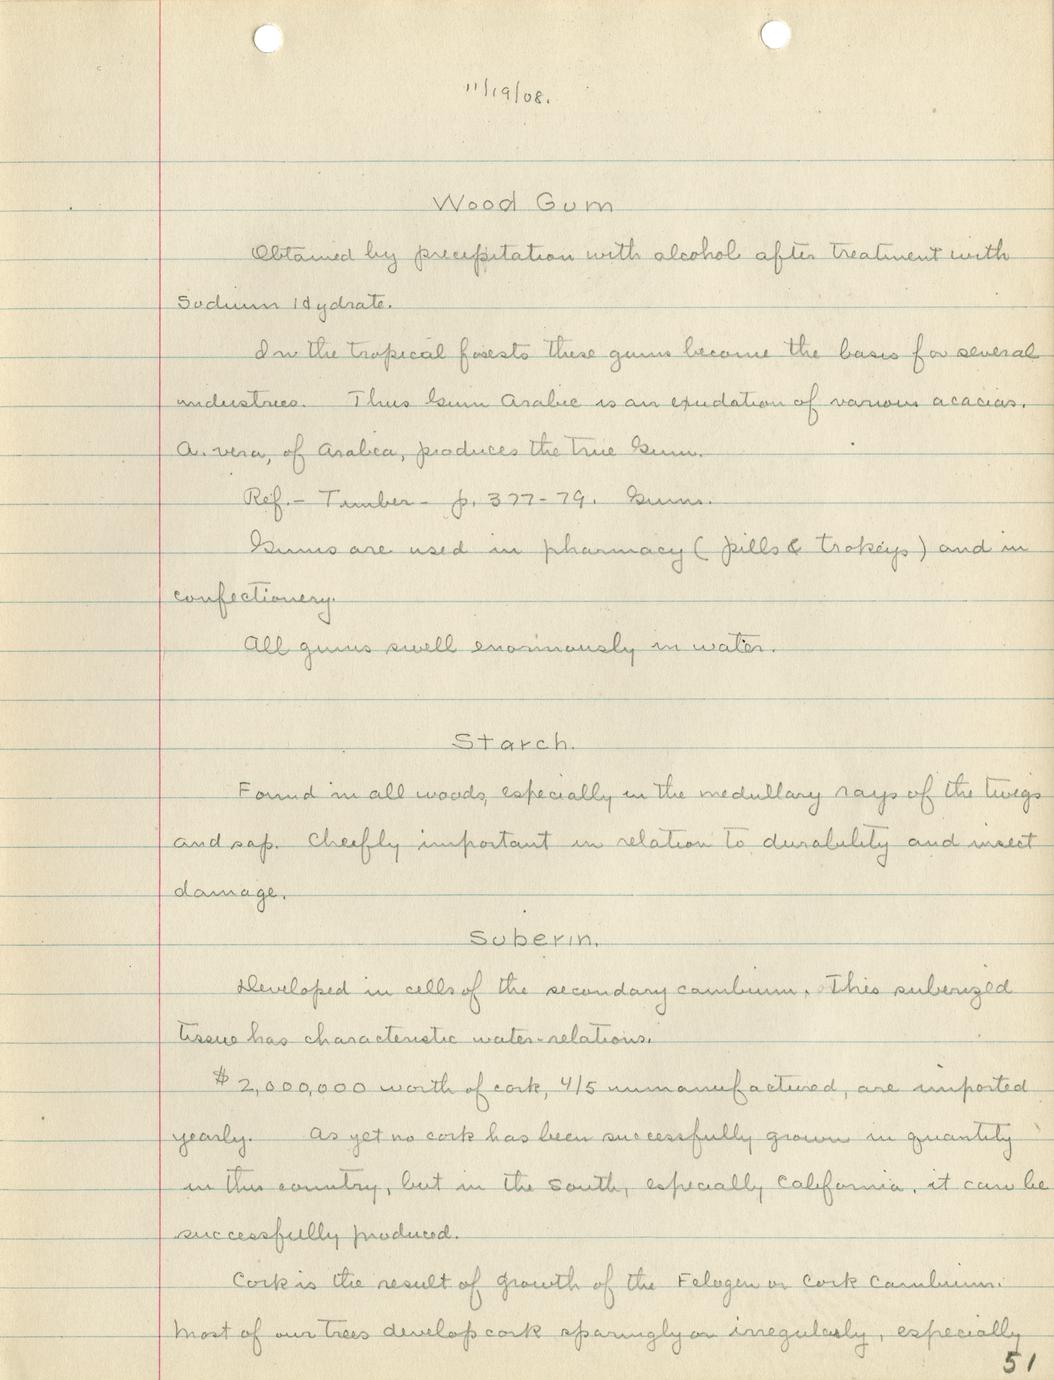 11/19/08.
Wood Gum
Obtained by precipitation with alcohol after treatment with
Sodium Hydrate.
In the tropical forests these gums become the basis for several
industries. Thus Gum Arabic is an exudation of various acacias.
A. vera, of Arabia, produces the true Gum.
Ref. - Timber - p. 377-79. Gums.
Gums are used in pharmacy ( pills & trokeys ) and in
confectionery.
All gums swell enormously in water.
Starch.
Found in all woods, especially in the medullary rays of the twigs
and sap. Cheifly important in relation to durability and insect
damage.
Suberin.
Developed in cells of the secondary cambium. This suberized
tissue has characteristic water-relations.
$2,000,000 worth of cork, 4/5 unmanufactured, are imported
yearly. As yet no cork has been successfully grown in quantity
in this country, but in the South, especially California, it can be
successfully produced.
Cork is the result of growth of the Felogen or Cork Cambium.
Most of our trees develop cork sparingly or irregularly, especially
51